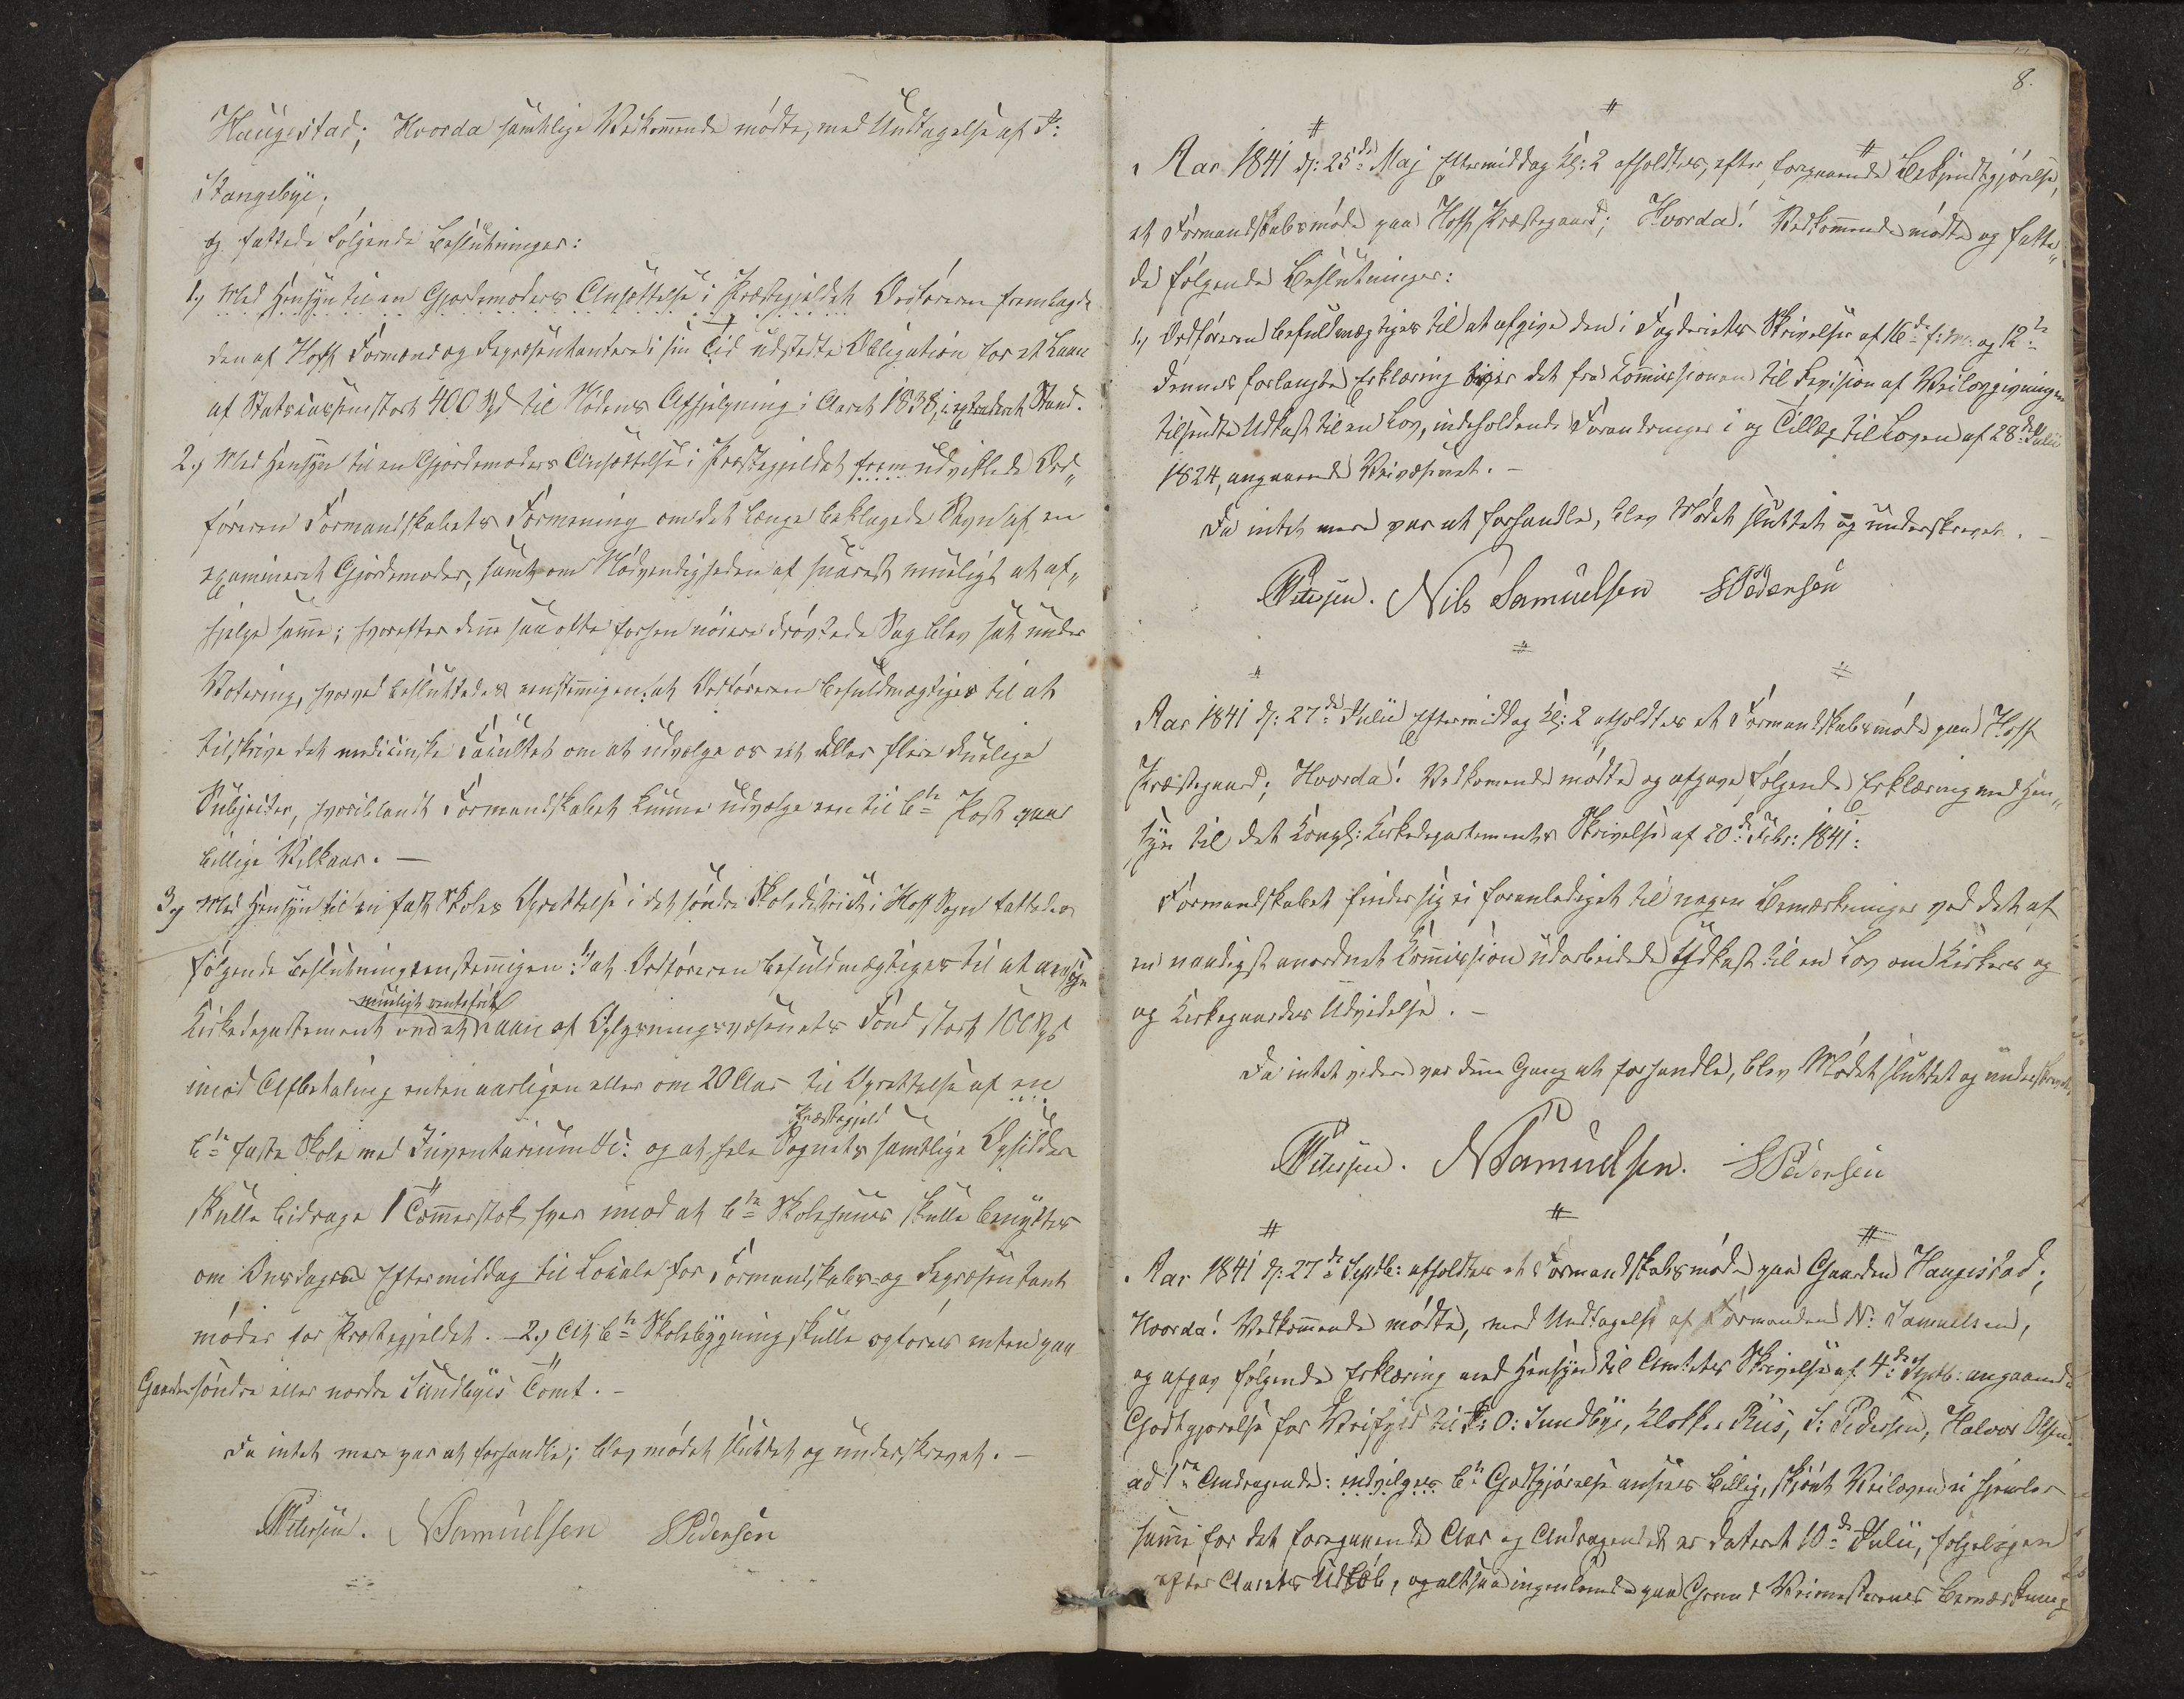 Haugestad; Hvorda samtlige Vedkommende mødte, med Undtagelse af P:
Stangebye;
og fattede følgende Beslutninger:
1.) Med Hensyn til en Gjordemoders Ansættelse i Præstegjeldet Ordføreren fremlagde
den af Hoff Formænd og Repræsentantere i sin Tid udstedte Obligation for et Laan
af Statscassen stort 400 Spd til Nødens Afhjelpning i Aaret 1838, i extraderet Stand.
2.) Med Hensyn til en Gjordemoders Ansættelse i Præstegjeldet frem udviklede Ord„
føreren Formandskabets Formening om det længe beklagede Savn af en
examineret Gjordemoder, samt om Nødvendigheden af snarest mueligt at af„
hjelpe samme; hvorefter denne saa ofte forhen nøiere drøvtede Sag blev sat under
Votering, hvorved besluttedes eenstemmigen: at Ordføreren befuldmægtiges til at
tilskrive det medicinske Facultet om at udvælge os eet eller flere duelige
Subjecter, hvoriblandt Formandskabet kunne udvælge een til bte Post paa
billige Vilkaar. —
3.) Med Hensyn til en fast Skoles Oprettelse i det søndre Skoledistrict i Hoff Sogn fattedes
følgende Beslutning eenstemmigen: 1) at Ordføreren befuldmægtiges til at ansøge
mueligt rentefrit
Kirkedepartementet om et Laan af Oplysningsvæsenets Fond stort 100 Spd
imod Afbetaling enten aarligen eller om 20 Aar til Oprettelse af en
Præstegjeld
bte faste Skole med Inventarium &c: og at hele Sognets samtlige Opsiddere
skulle bidrage 1 Tømmerstok hver imod at bte Skolehuus skulle benyttes
om Onsdagens Eftermiddag til Locale for Formandskabs- og Repræsentant
møder for Præstegjeldet. — 2.) At bte Skolebygning skulle opføres enten paa
Gaarden søndre eller nordre Sundbyes Tomt. —
Da intet mere var at forhandle; blev mødet sluttet og underskrevet. —
Petersen. NSamuelsen SPedersen
8.
Aar 1841 d: 25de Maj Eftermiddag Kl: 2 afholdtes, efter foregaaende Bekjendtgjørelse,
et Formandskabsmøde paa Hoff Præstegaard; Hvorda! Vedkommende mødte og fatte„
de følgende Beslutninger:
1.) Ordføreren befuldmægtiges til at afgive den i Fogderiets Skrivelser af 16de f: M: og 12te
dennes forlangte Erklæring over det fra Kommissionen til Revision af Veilovgivningen
tilsendte Udkast til en Lov, indeholdende Forandringer i og Tillæg til Loven af 28de Julii
1824, angaaende Veivæsenet. —
Da intet mere var at forhandle, blev Mødet sluttet og underskrevet. —
Petersen. Nils Samuelsen SPedersen
Aar 1841 d: 27de Julii Eftermiddag Kl: 2 afholdtes et Formandskabsmøde paa Hoff
Præstegaard; Hvorda! Vedkomende mødte og afgave følgende Erklæring med Hen„
syn til det Kongl: Kirkedepartements Skrivelse af 20de Febr: 1841:
Formandskabet finder sig ei foranlediget til nogen Bemærkninger ved det af
en naadigst anordnet Kommission udarbeidede Udkast til en Lov om Kirkers og
og Kirkegaardes Udvidelse. —
Da intet videre var denne Gang at forhandle, blev Mødet sluttet og underskrevet.
Petersen. NSamuelsen. SPedersen
Aar 1841 d: 27de Septb: afholdtes et Formandskabsmøde paa Gaarden Haugestad;
Hvorda! Vedkommende mødte, med Undtagelse af Formanden N: Samuelsen,
og afgav følgende Erklæring med Hensyn til Amtets Skrivelse af 4de Septb: angaaende
Godtgjørelse for Veifyld til P: O: Sundbye, Klokker Riis, S: Pedersen, Halvor Olsen.
ad 1ste Andragende: indvilges bte Godtgjørelse ansees billig, skjønt Veiloven ei hjemler
samme for det foregaaende Aar og Andragendet er dateret 10de Julii, følgeligen
efter Aarets Udløb, og altsaa ingenlunde paa Grund Veimesterens Bemærkning